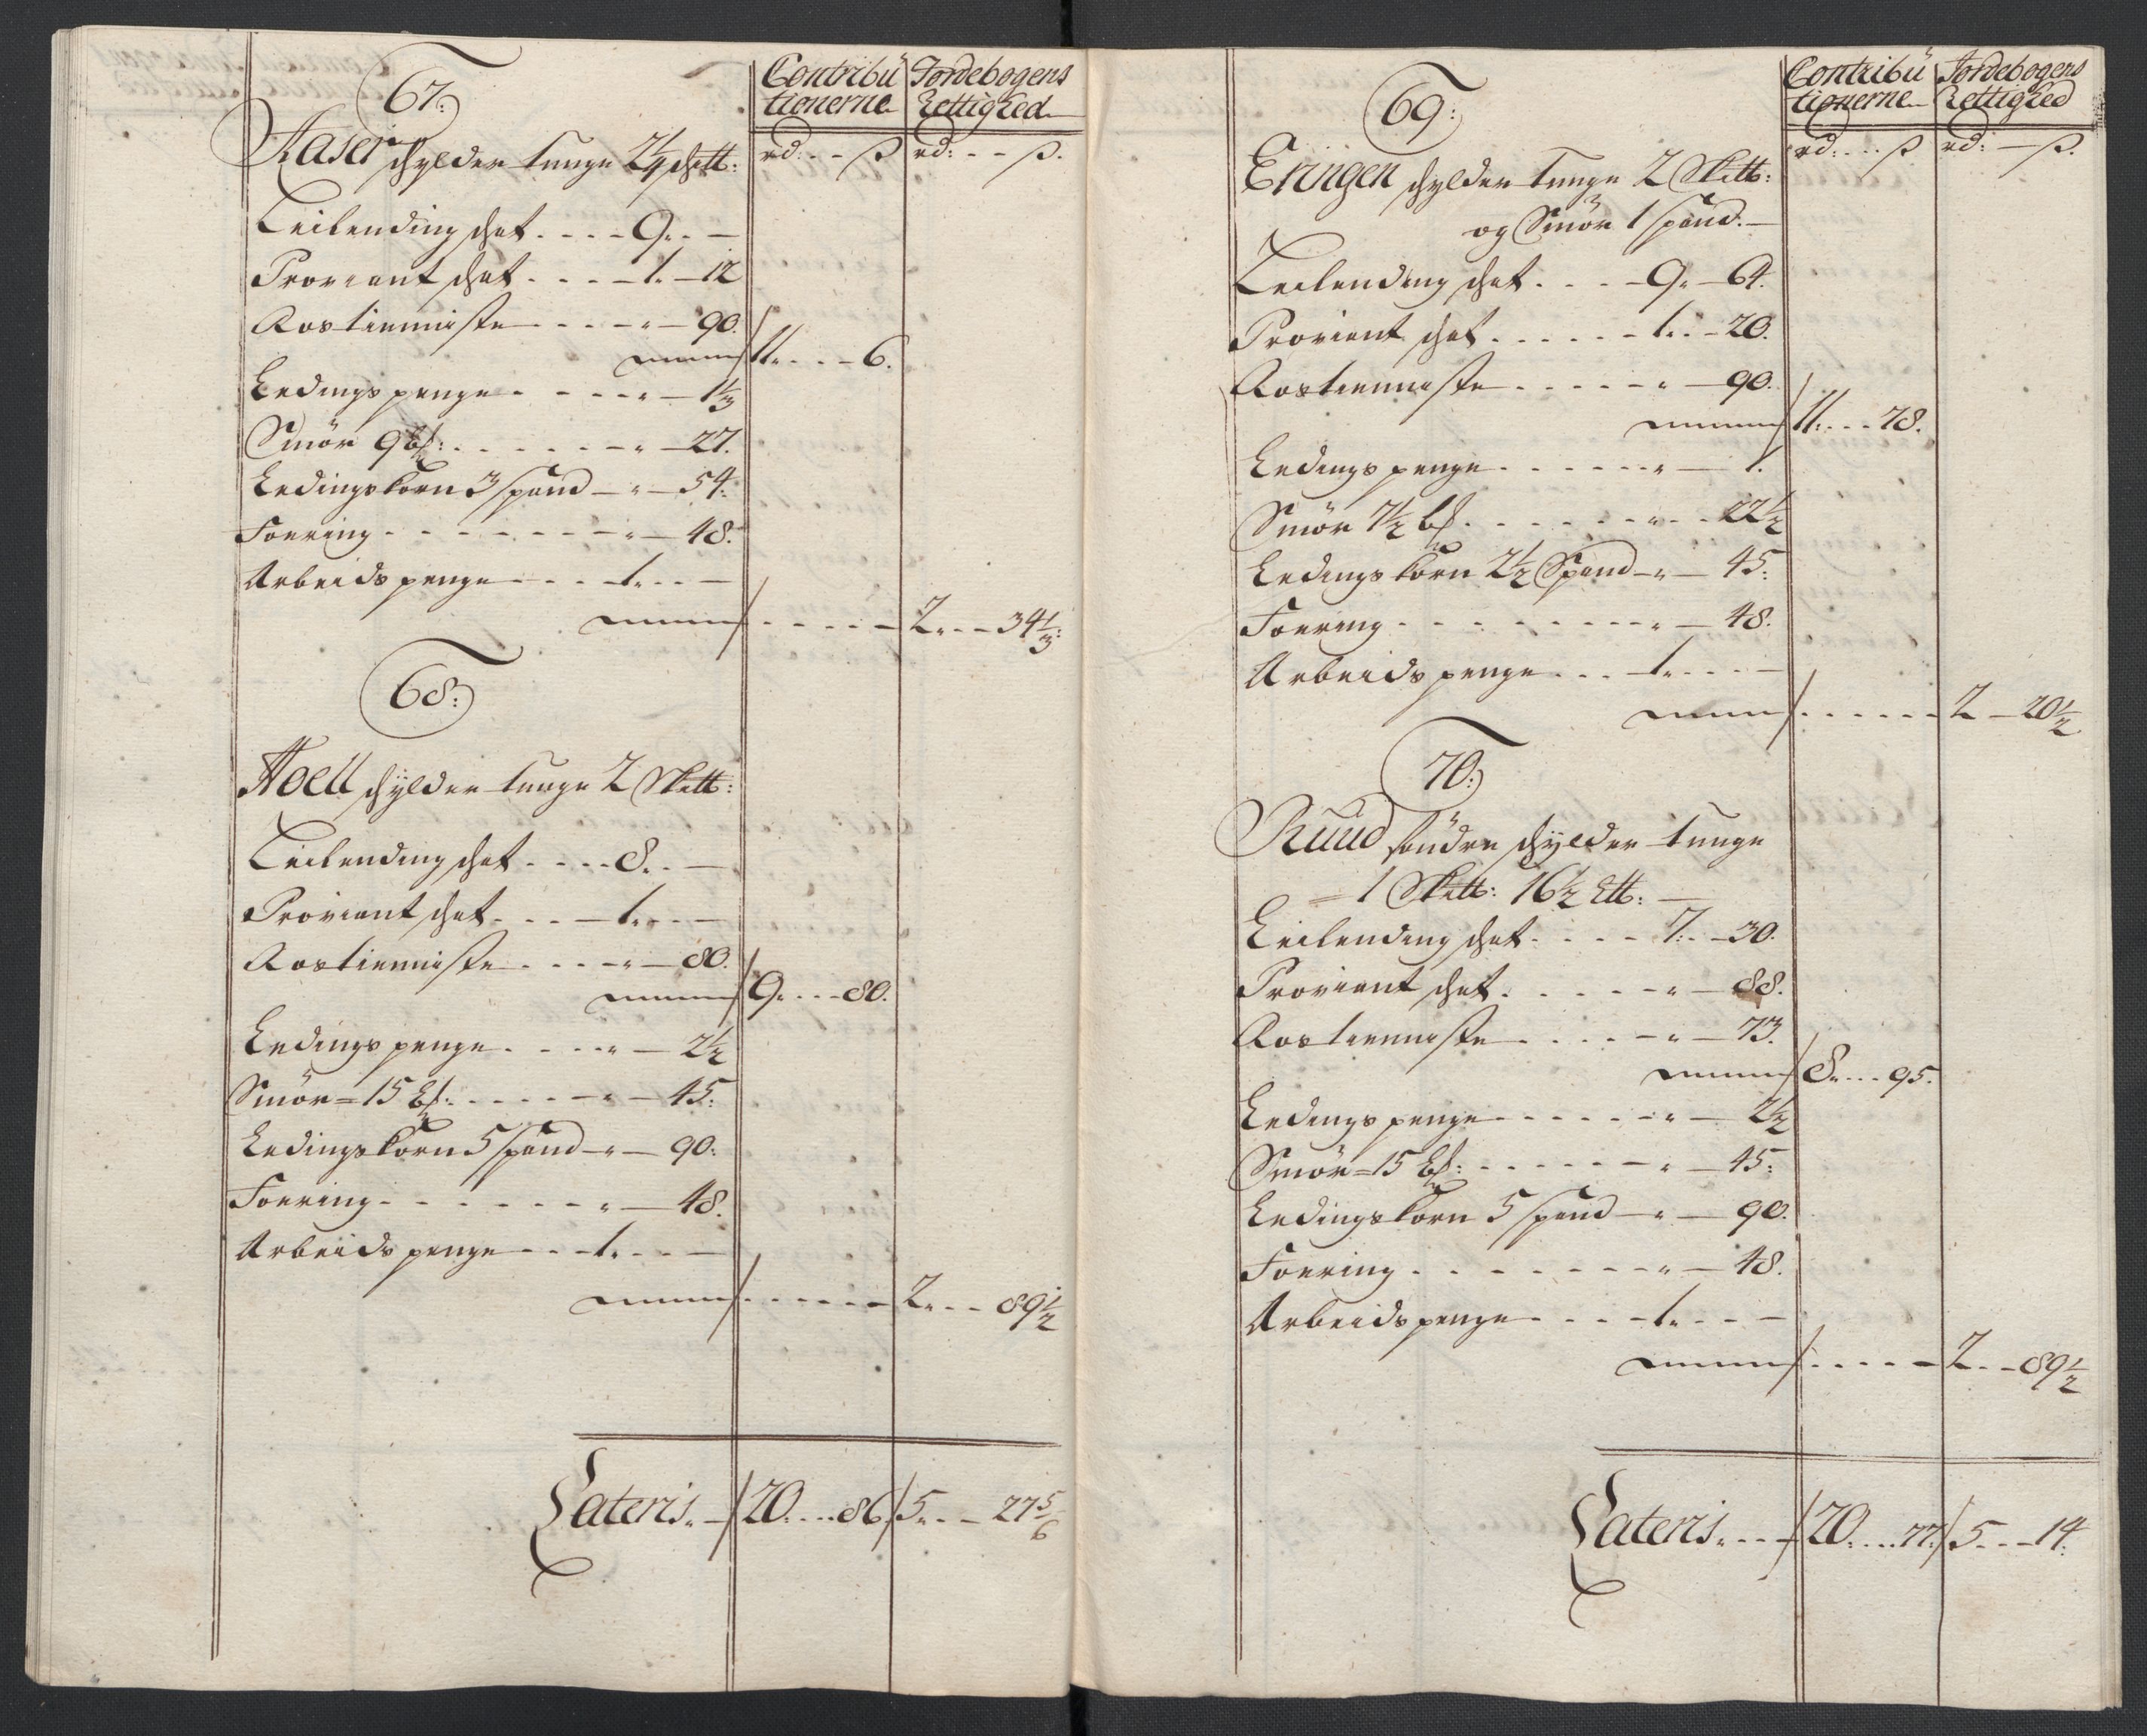 Contribu Jordebogens
tionerne Rettighed
rd: - - ß rd: - - ß.
67:
Aaser schylder tunge 2¼ schtt:
Leilending schat - - - - 9 - - —
Proviant schat - - - - 1 - 12
Rostienniste - - - - " - 90.
11 - - - 6.
Ledings penge - - - - " - 1⅓
Smör 9 bß: - - - - - - " - 27.
Ledingskorn 3 spand - " - 54:
Foering - - - - - - - " - 48.
Arbeids penge - - - 1 - - —
- - - - - 2 - - 34⅓:
68:
Hoell schÿlder tunge 2 Skltt:
Leilending schat - - - - 8 - - —
Proviant schat - - - - 1 - - —
Rostienniste - - - - " - 80.
9 - - - 80.
Ledings penge - - - - " - 2½
Smör = 15 bß: - - - - - " - 45:
Ledingskorn 5 spand - " - 90:
Foering - - - - - - - " - 48.
Arbeids penge - - - 1 - - —
- - - - - 2 - - 89½
Lateris. - 20 - - - 86 5 - - 27⅚
Contribu Jordebogens
tionerne Rettighed
rd: - - ß rd: - ß.
69:
Eningen schylder tunge 2 Skltt:
og Smör 1 spand. —
Leilending schat - - - - 9 - 64.
Proviant schat - - - - - - 1 - - 20.
Rostienniste - - - - - " - 90.
11 - - - 78.
Ledings penge - - - - - - " - 1.
Smör 7½ bß - - - - - - " - - 22½
Ledings korn 2½ Spand - " - 45:
Foering - - - - - - - - " - 48.
Arbeids penge - - - 1 - - - —
- - - - - - 2 - 20½
70:
Ruud söndre schÿlder tunge
= 1 Skltt: 16½ Ltt: —
Leilending schat - - - - 7 - - 30.
Proviant schat - - - - - " - 88.
Rostienniste - - - - - " - 73.
8 - - - 95.
Ledings penge - - - - - - " - 2½
Smör = 15 bß: - - - - - - " - 45:
Ledingskorn 5 spand - " - 90.
Foering - - - - - - - " - 48.
Arbeidspenge - - - - 1 - - - —
- - - - - 2 - - 89½
Lateris - - - 20 - - - 77 5 - - - 14.